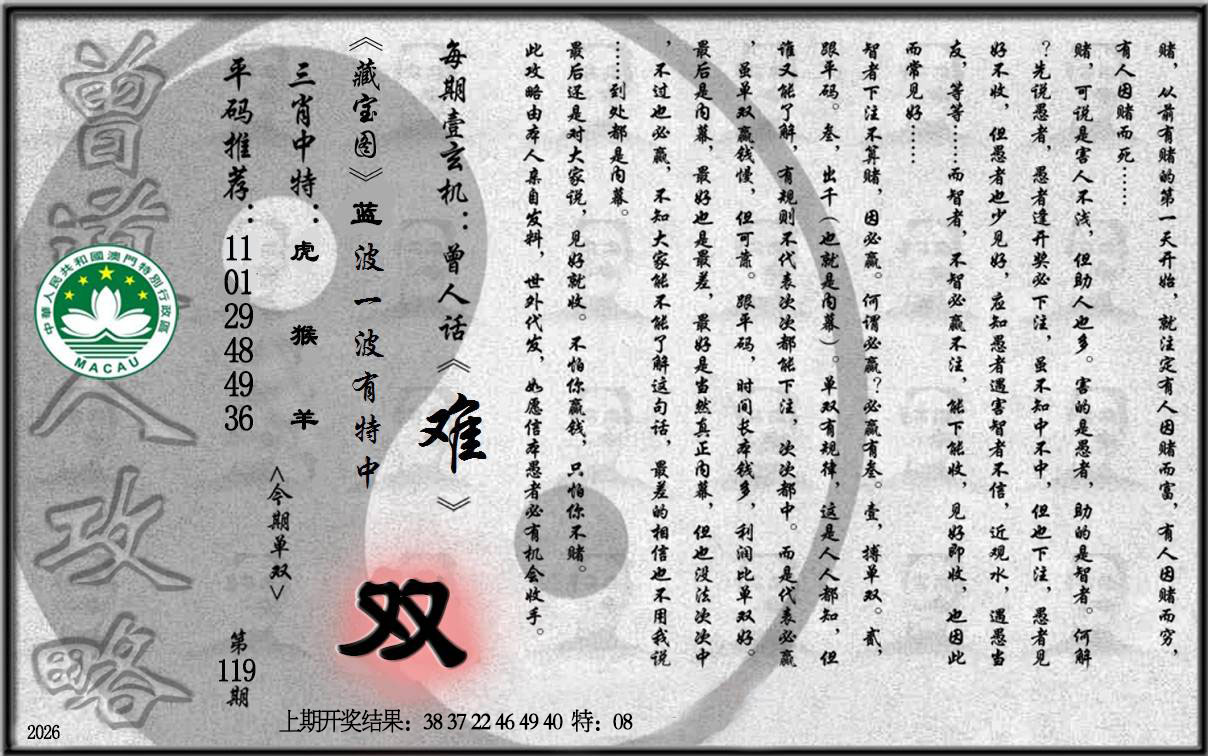 赌，从前有赌的第一天开始，就注定有人因赌而富，有人因赌而穷，
有人因赌而死……
赌，可说是害人不浅，但助人也多。害的是愚者，助的是智者。何解
？先说愚者，愚者逢开奖必下注，虽不知中不中，但也下注，愚者见
好不收，但愚者也少见好，应知愚者遇害智者不信，近观水，遇愚当
友，等等……而智者，不智必赢不注，能下能收，见好即收，也因此
而常见好……
智者下注不算赌，因必赢。何谓必赢？必赢有叁。壹，搏单双。贰，
跟平码。叁，出千（也就是内幕）。单双有规律，这是人人都知，但
谁又能了解，有规则不代表次次都能下注，次次都中。而是代表必赢
，虽单双赢钱慢，但可靠。跟平码，时间长本钱多，利润比单双好。
最后是内幕，最好也是最差，最好是当然真正内幕，但也没法次次中
，不过也必赢，不知大家能不能了解这句话，最差的相信也不用我说
……到处都是内幕。
最后还是对大家说，见好就收。不怕你赢钱，只怕你不赌。
此攻略由本人亲自发料，世外代发，如愿信本愚者必有机会收手。
每期壹玄机：曾人话《难》
《藏宝图》蓝波一波有特中
双
三肖中特：虎 猴 羊
<今期单双>
平码推荐：11 01 29 48 49 36
第119期
曾道人攻略
中華人民共和國澳門特別行政區
MACAU
上期开奖结果：38 37 22 46 49 40 特：08
2026